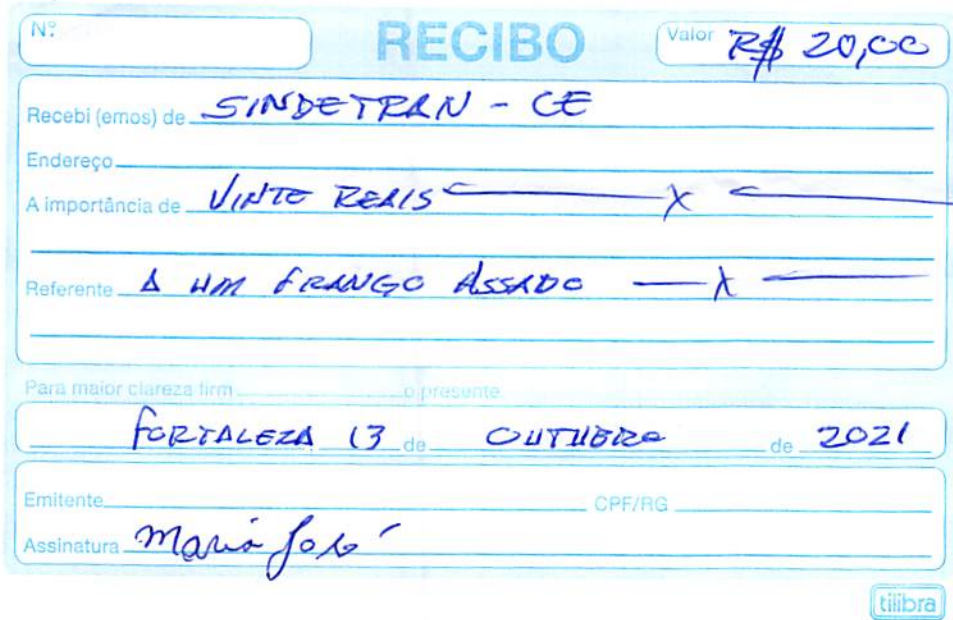 Nº RECIBO Valor R$ 20,00
Recebi (emos) de SINDETRAN - CE
Endereço
A importância de VINTE REAIS x
Referente A UM FRANGO ASSADO x
Para maior clareza firm o presente
FORTALEZA 13 de OUTUBRO de 2021
Emitente CPF/RG
Assinatura Maria José
tilibra